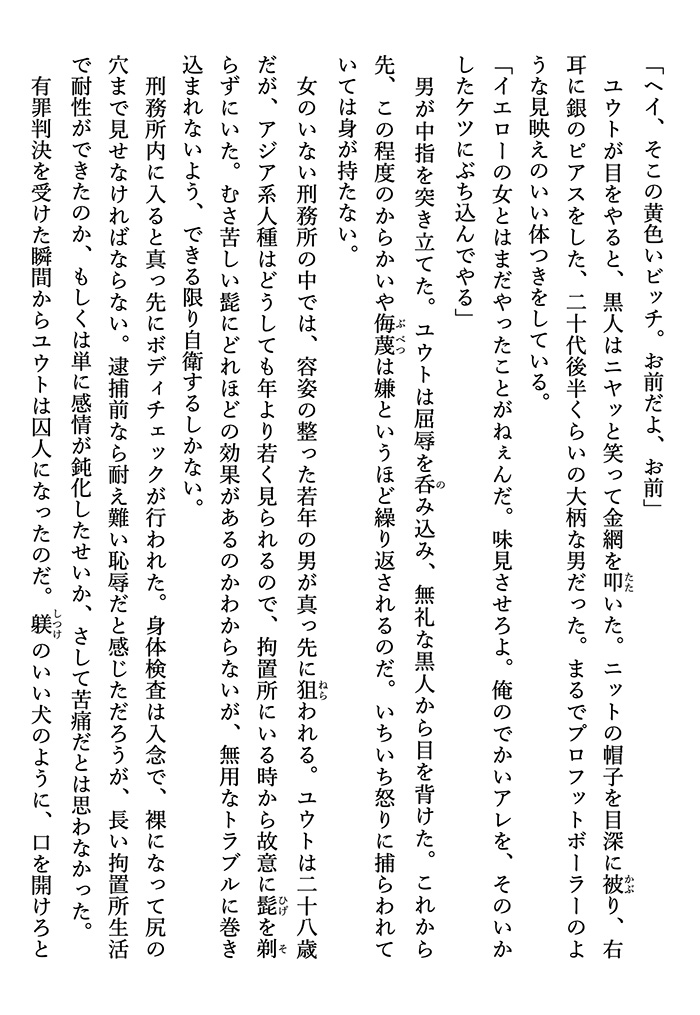 「ヘイ、そこの黄色いビッチ。お前だよ、お前」
ユウトが目をやると、黒人はニヤッと笑って金網を叩いた。ニットの帽子を目深に被り、右
耳に銀のピアスをした、二十代後半くらいの大柄な男だった。まるでプロフットボーラーのよ
うな見映えのいい体つきをしている。
「イエローの女とはまだやったことがねぇんだ。味見させろよ。俺のでかいアレを、そのいか
したケツにぶち込んでやる」
男が中指を突き立てた。ユウトは屈辱を呑み込み、無礼な黒人から目を背けた。これから
先、この程度のからかいや侮蔑は嫌というほど繰り返されるのだ。いちいち怒りに捕らわれて
いては身が持たない。
女のいない刑務所の中では、容姿の整った若年の男が真っ先に狙われる。ユウトは二十八歳
だが、アジア系人種はどうしても年より若く見られるので、拘置所にいる時から故意に髭を剃
らずにいた。むさ苦しい髭にどれほどの効果があるのかわからないが、無用なトラブルに巻き
込まれないよう、できる限り自衛するしかない。
刑務所内に入ると真っ先にボディチェックが行われた。身体検査は入念で、裸になって尻の
穴まで見せなければならない。逮捕前なら耐え難い恥辱だと感じただろうが、長い拘置所生活
で耐性ができたのか、もしくは単に感情が鈍化したせいか、さして苦痛だとは思わなかった。
有罪判決を受けた瞬間からユウトは囚人になったのだ。躾のいい犬のように、口を開けろと